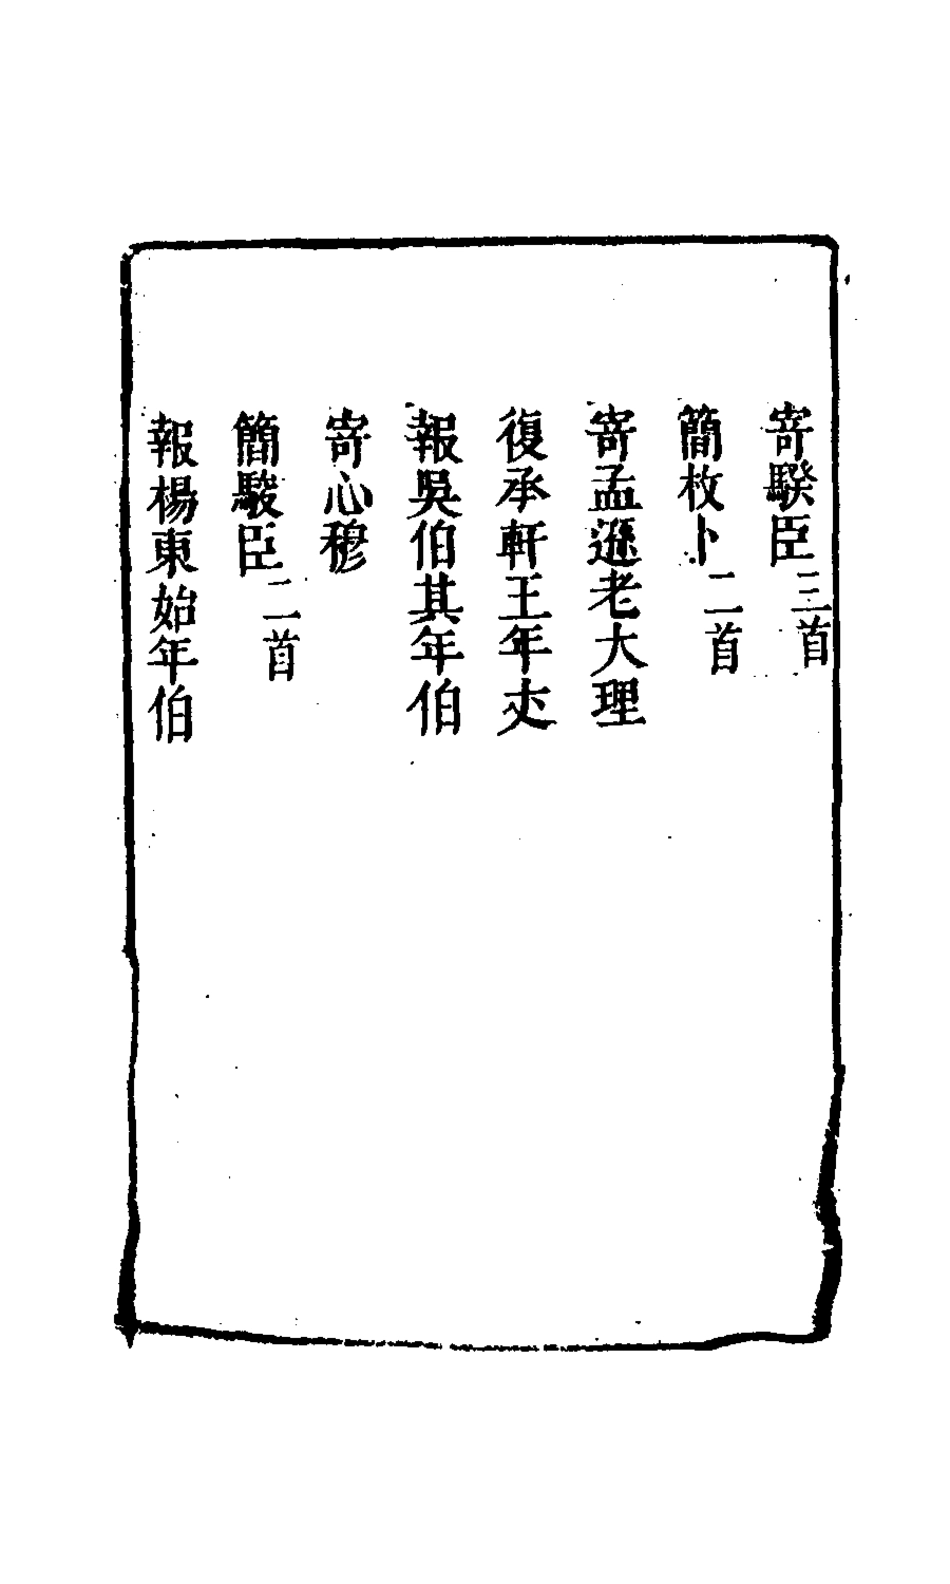 寄騤臣三首
簡枚卜二首
寄孟遜老大理
復承軒王年丈
報吳伯其年伯
寄心穆
簡駿臣二首
報楊東始年伯